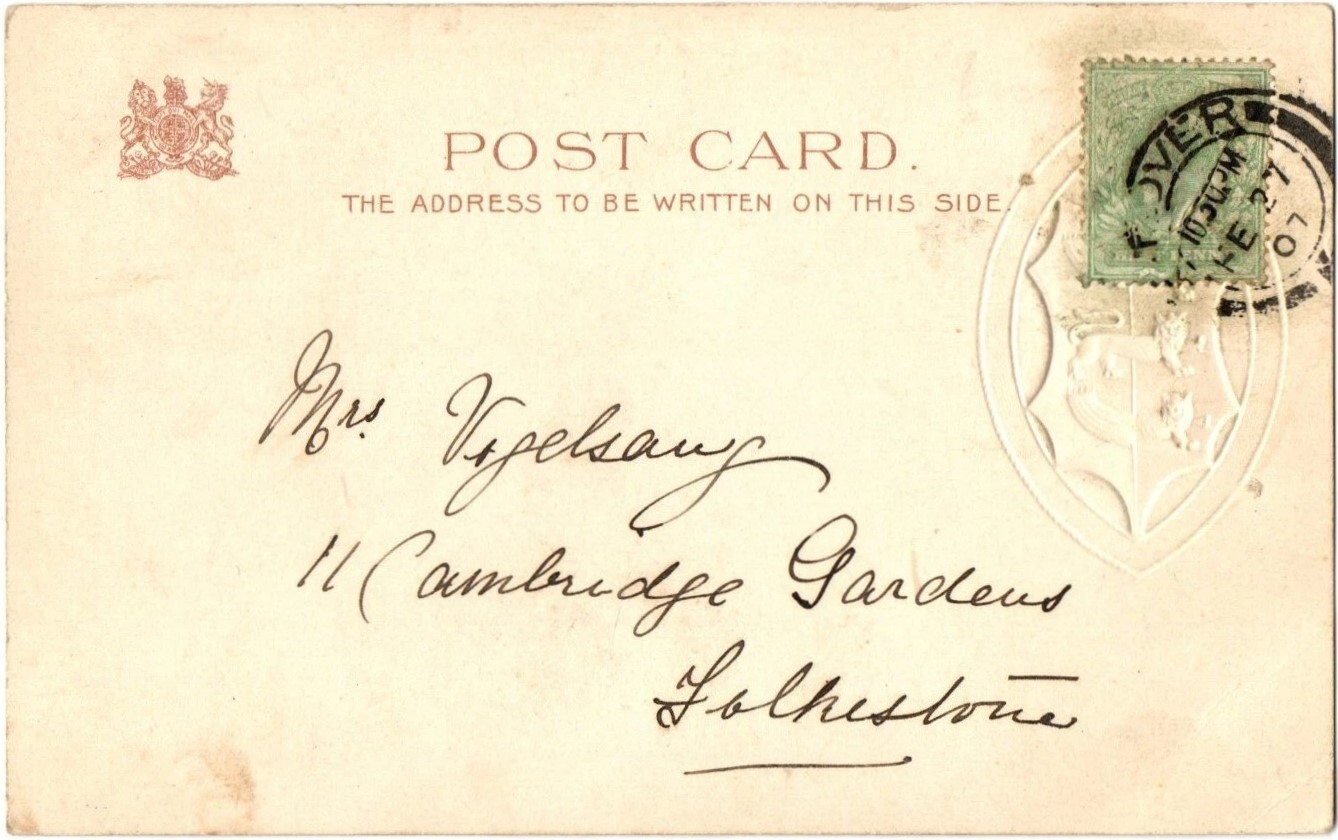 POST CARD.
THE ADDRESS TO BE WRITTEN ON THIS SIDE.
DOVER
1030PM
FE 27
07
Mrs. Vogelsang
11 Cambridge Gardens
Folkestone